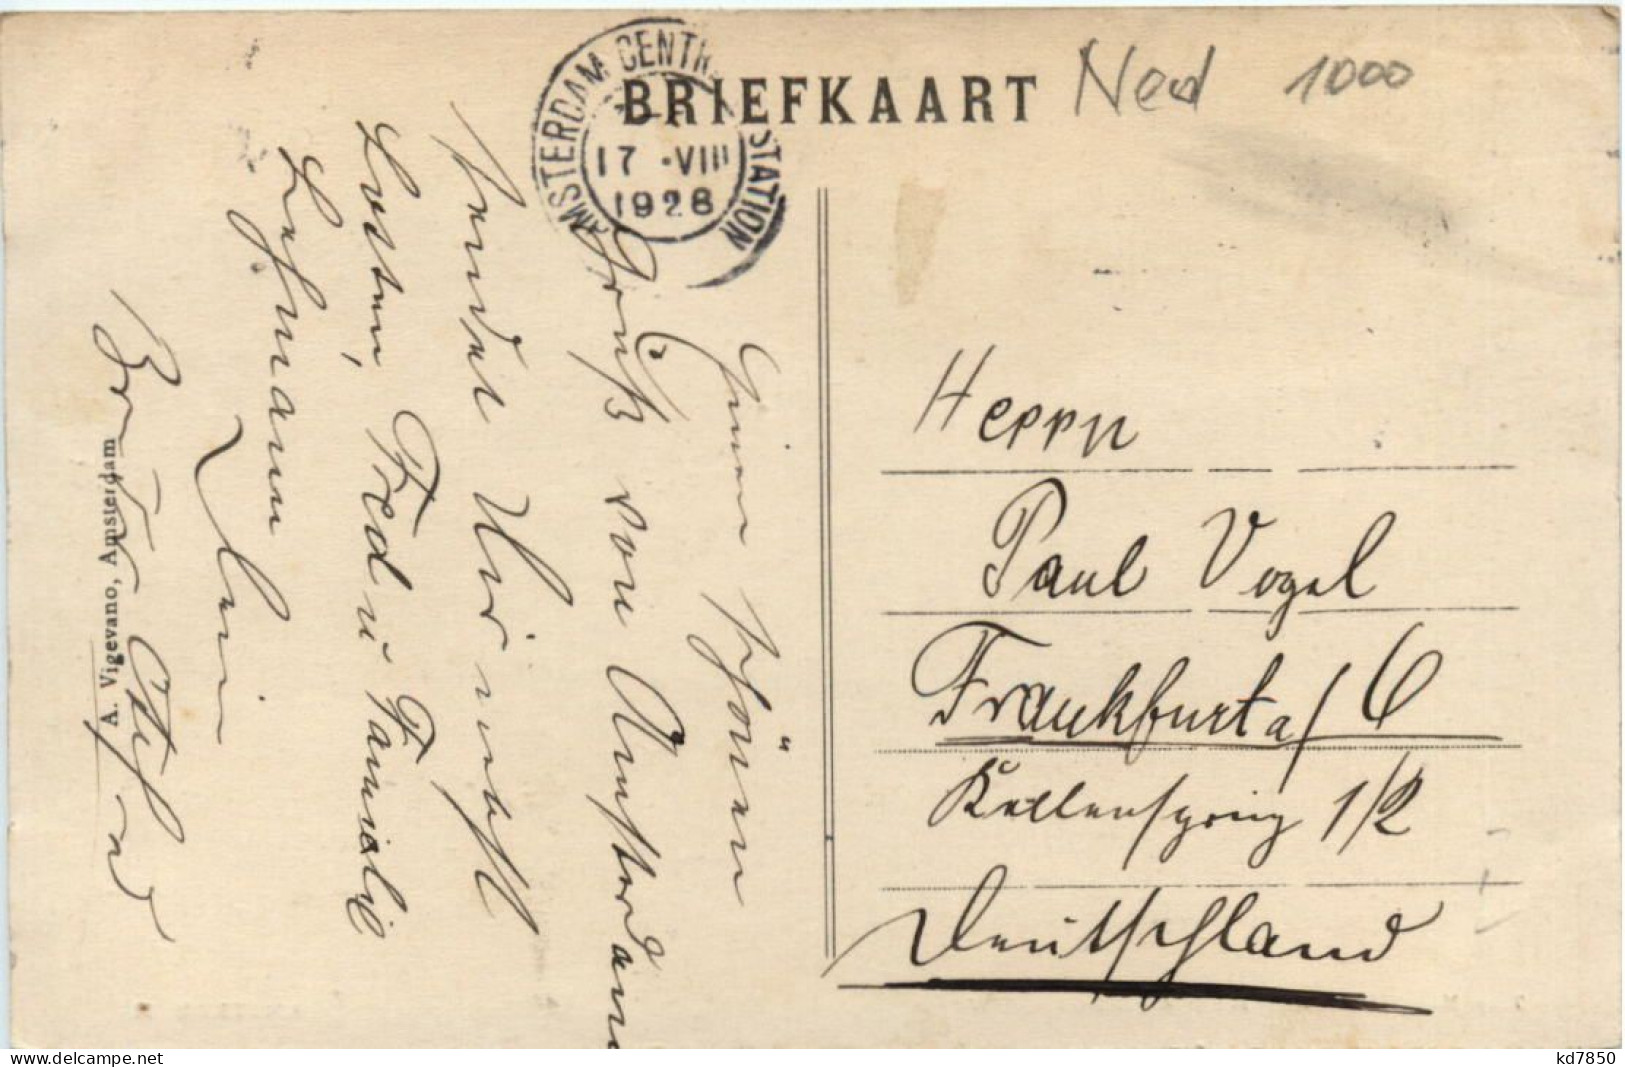 BRIEFKAART
Ned 1000
AMSTERDAM CENTR STATION
17 ·VIII
1928
Herrn
Paul Vogel
Frankfurt a/
Kettenhofweg 1/2
Deutschland
Einen schönen
Gruß von Amsterdam
sendet Dir nebst
Fred u Familie
Lehmann
Dein
Bruder
A. Vigevano, Amsterdam
delcampe.net
kd7850